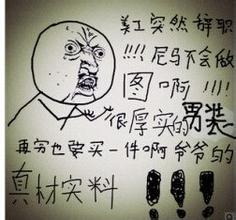 美工突然辞职
!!!尼马不会做
图啊!!!
很厚实的男装
再穷也要买一件啊爷爷的
真材实料!!!